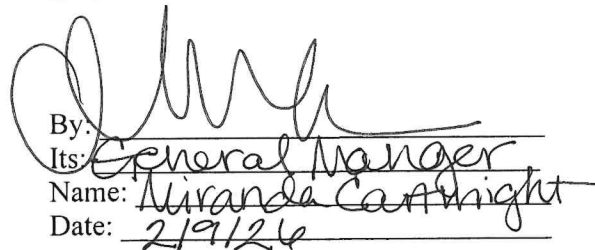 By:
Its: General Manger
Name: Miranda Cartwright
Date: 2/9/26